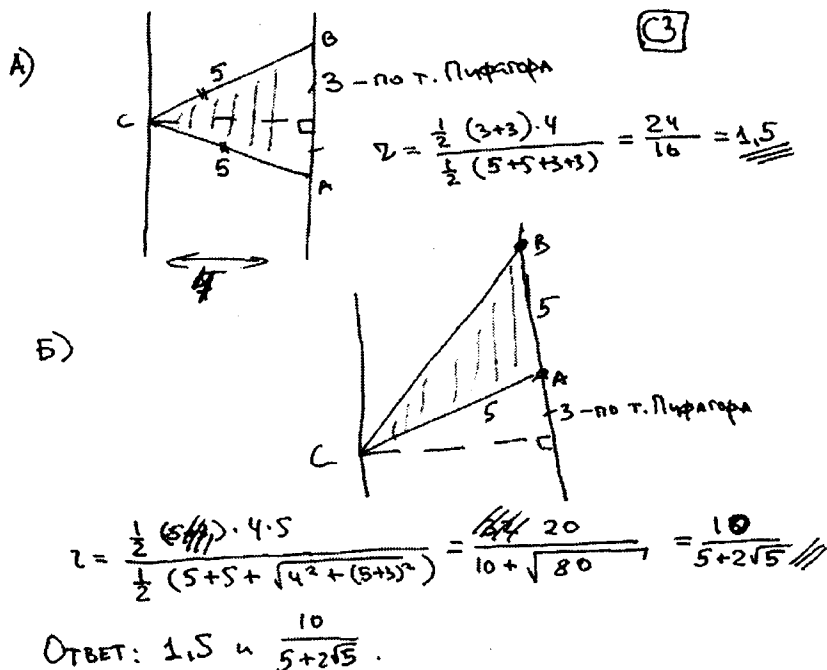 C3
А)
B
5
3 - по т. Пифагора
C
5
A
r = \frac{\frac{1}{2} (3+3) \cdot 4}{\frac{1}{2} (5+5+3+3)} = \frac{24}{16} = 1,5
4
Б)
B
5
A
5
3 - по т. Пифагора
C
r = \frac{\frac{1}{2} \cdot 4 \cdot 5}{\frac{1}{2} (5+5+\sqrt{4^2+(5+3)^2})} = \frac{20}{10+\sqrt{80}} = \frac{10}{5+2\sqrt{5}}
Ответ: 1,5 и \frac{10}{5+2\sqrt{5}}.